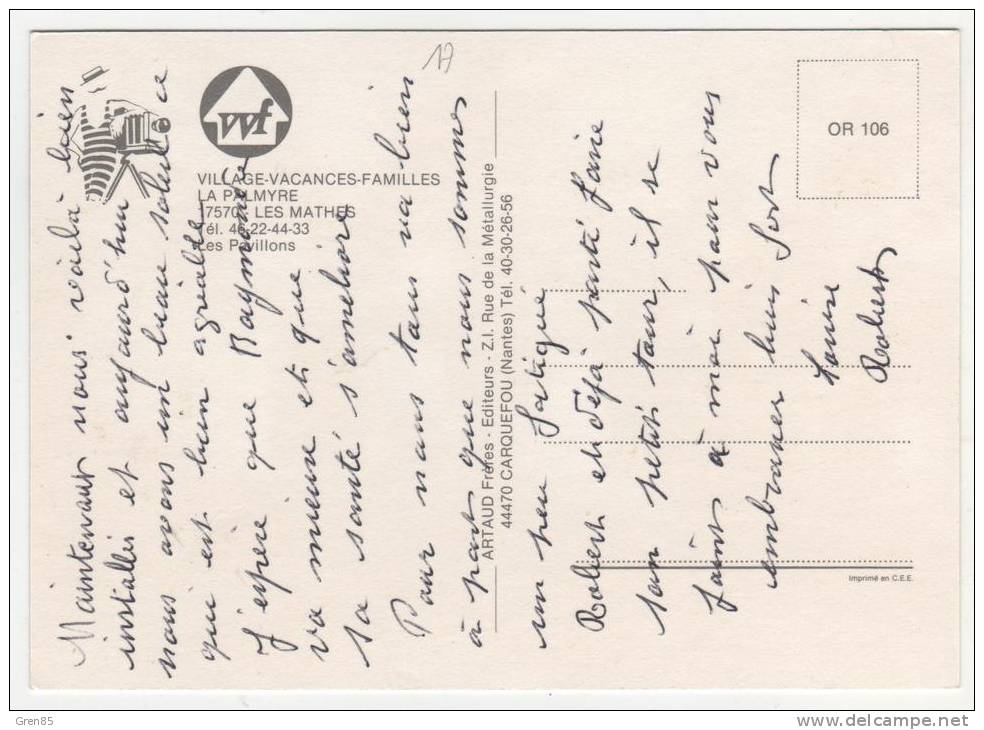 17
vvf
VILLAGE-VACANCES-FAMILLES
LA PALMYRE
17570 LES MATHES
Tél. 46-22-44-33
Les Pavillons
ARTAUD Frères - Editeurs - Z.I. Rue de la Métallurgie
44470 CARQUEFOU (Nantes) Tél. 40-30-26-56
OR 106
Imprimé en C.E.E.
Maintenant nous voilà bien
installés et aujourd'hui
nous avons un beau soleil ce
qui est bien agréable
J'espère que Raymonde
va mieux et que
sa santé s'améliore
Pour nous tous va bien
à part que nous sommes
un peu fatigué
Robert est déjà parti faire
son petit tour, il se
joint à moi pour vous
embrasser bien fort
Louise
Robert
Gren85
www.delcampe.net